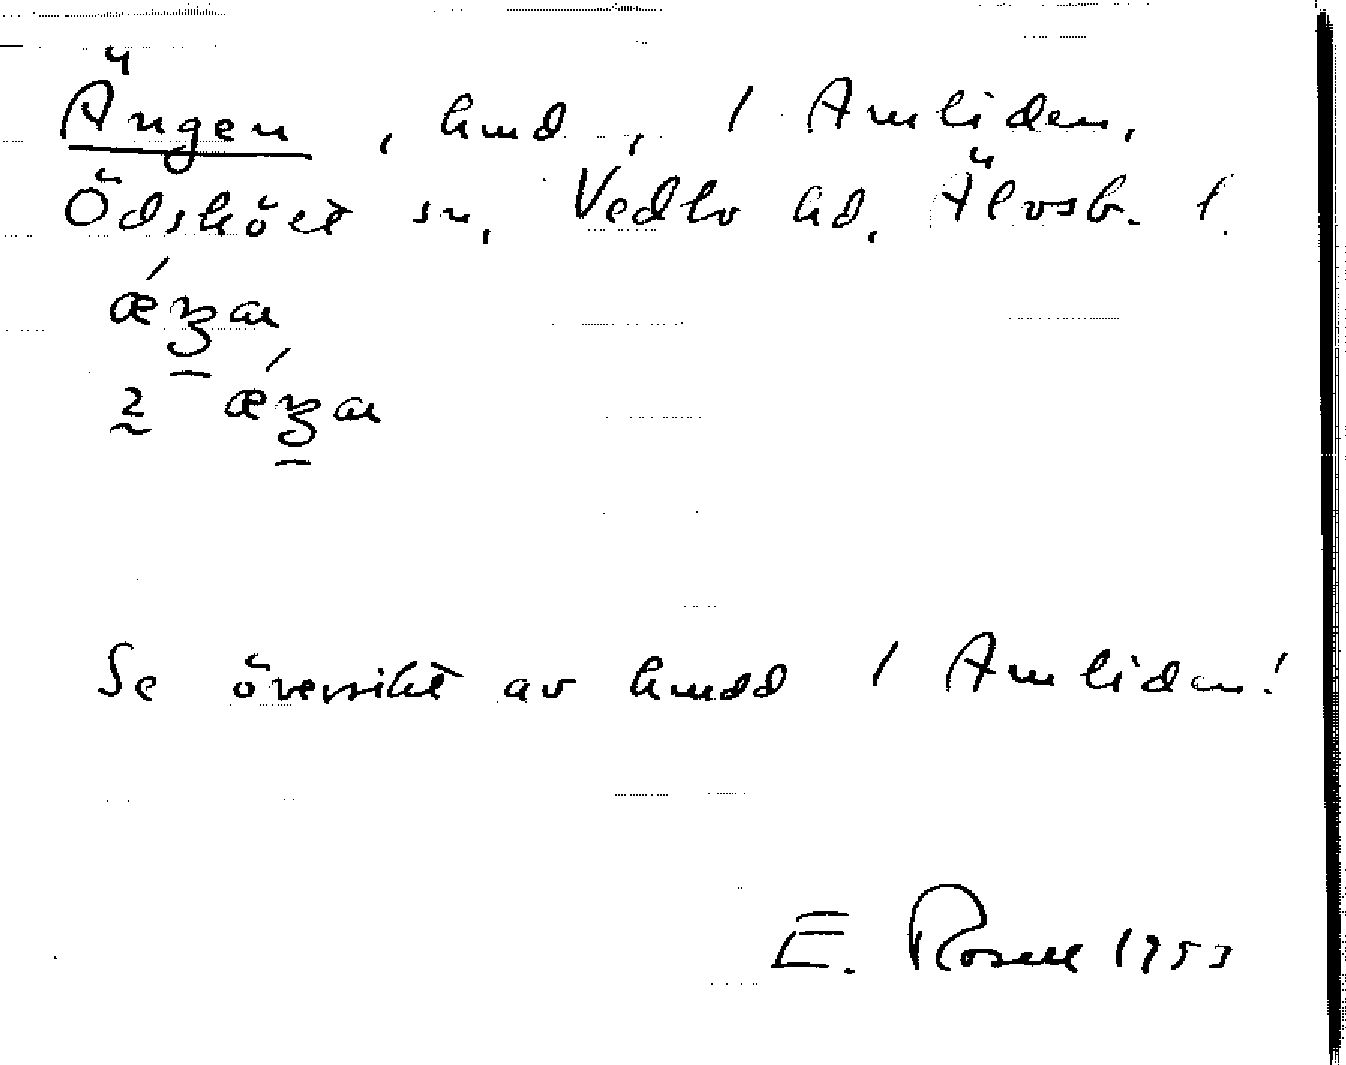 Ängen, hmd, 1 Amliden,
Ödskölt sn, Vedbo hd, Älvsb. l.
2
Se översikt av hmdd 1 Amliden!
E. Rosell 1953